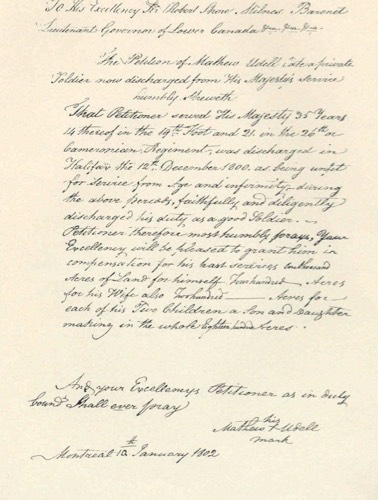 To His Excellency Sir Robert Shore Milnes Baronet
Lieutenant Governor of Lower Canada &c &c &c
The Petition of Mathew Udell late a private
Soldier now discharged from His Majesty's Service
humbly Sheweth
That Petitioner served His Majesty 35 Years
14 thereof in the 19th Foot and 21 in the 26th or
Cameronian Regiment, was discharged in
Halifax the 12th December 1800, as being unfit
for service from Age and infirmity, during
the above periods, faithfully and diligently
discharged his duty as a good Soldier.
Petitioner therefore most humbly prays, Your
Excellency will be pleased to grant him in
compensation for his past services
Acres of Land for himself Two hundred Acres
for his Wife also Two hundred Acres for
each of his Two Children a Son and Daughter
making in the whole Eighteen hundred Acres.
And your Excellencys Petitioner as in duty
bound Shall ever pray
his
Mathew + Udell
mark
Montreal January 1802